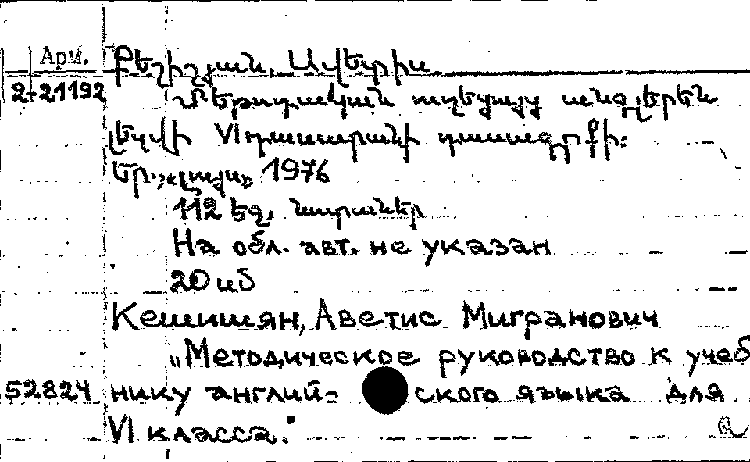 Арм. Քեշիշյան, Ավետիս
2-21192 Մեթոդական ուղեցույց անգլերեն
լեզվի VI դասարանի դասագրքի:
Եր., «Լույս», 1976
112 եջ,
На обл. авт. не указан
20
Кешишян, Аветис Мигранович
„Методическое руководство к учеб
52824 нику англий- ского языка для
VI класса."
а